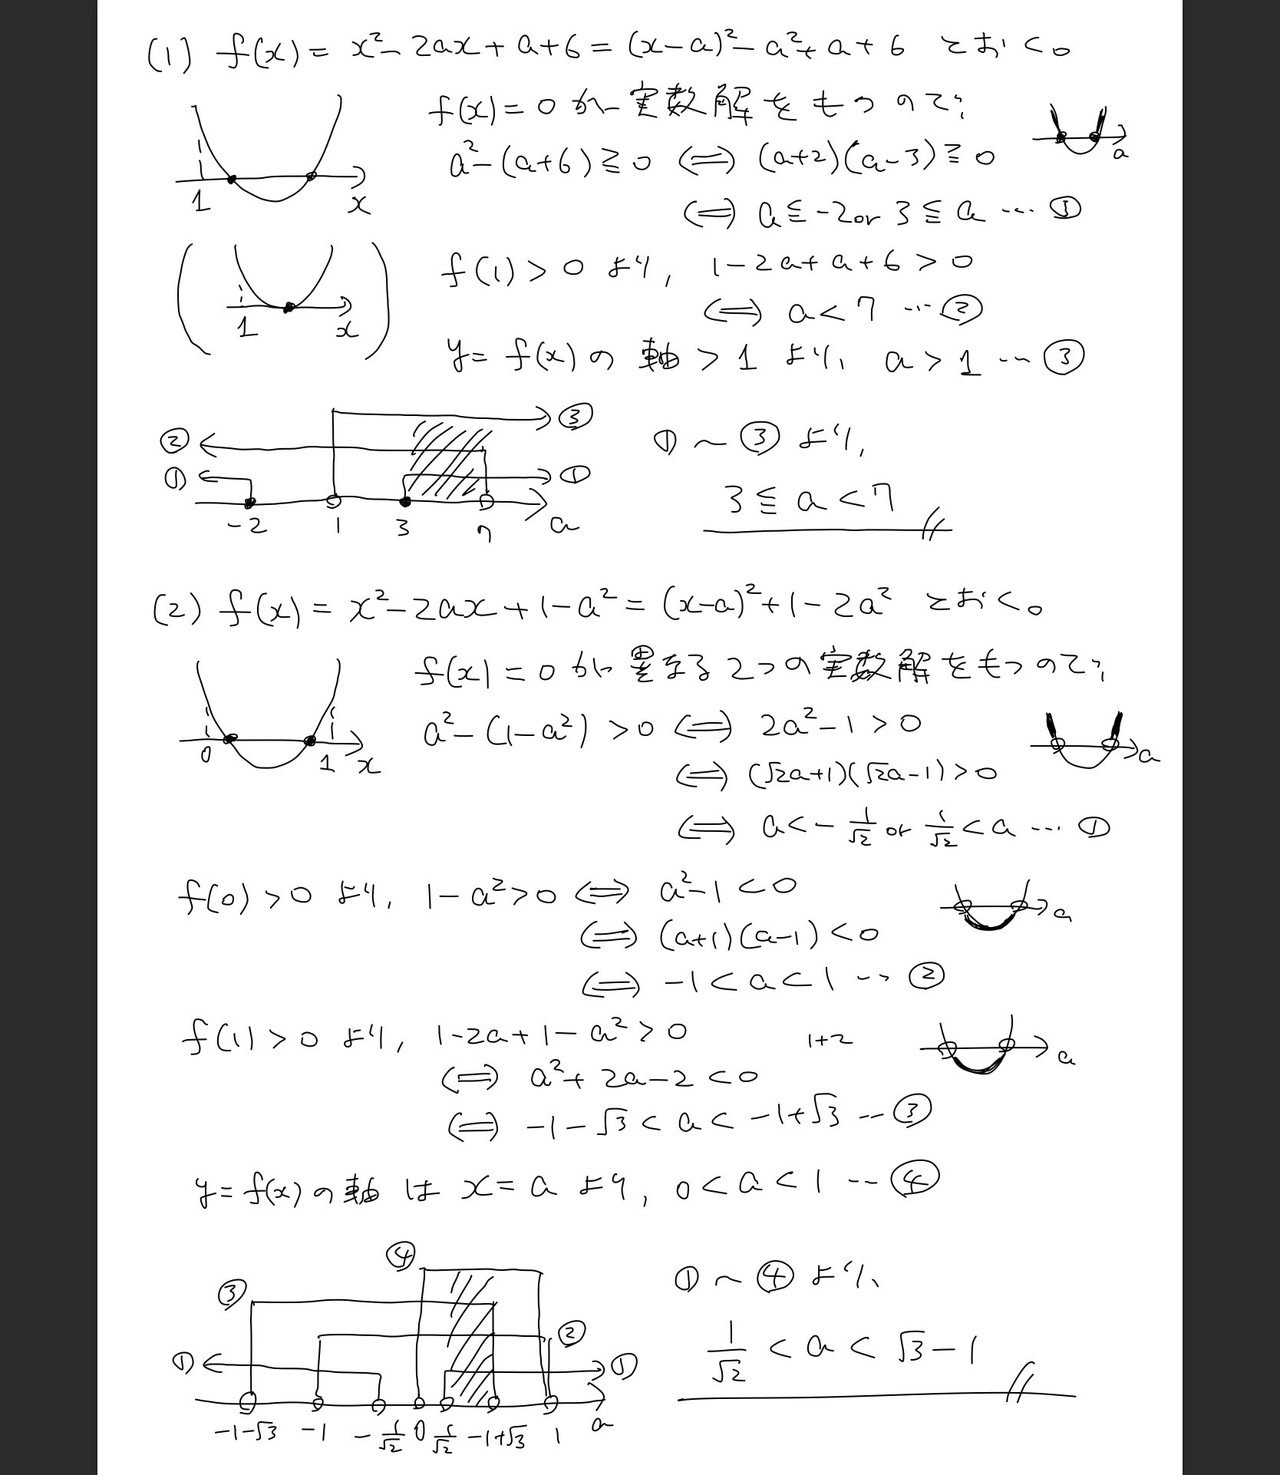 (1) f(x) = x² - 2ax + a + 6 = (x-a)² - a² + a + 6 とおく。
f(x) = 0 が 実数解をもつので、
a² - (a+6) ≧ 0 ⇔ (a+2)(a-3) ≧ 0
a
1 x
⇔ a ≦ -2 or 3 ≦ a … ①
f(1) > 0 より, 1 - 2a + a + 6 > 0
1 x
⇔ a < 7 … ②
y = f(x) の 軸 > 1 より、 a > 1 … ③
③
②
① ①
-2 1 3 7 a
① ~ ③ より,
3 ≦ a < 7
(2) f(x) = x² - 2ax + 1 - a² = (x-a)² + 1 - 2a² とおく。
f(x) = 0 が 異なる2つの実数解をもつので、
a² - (1-a²) > 0 ⇔ 2a² - 1 > 0
a
0 1 x
⇔ (√2a+1)(√2a-1) > 0
⇔ a < - 1/√2 or 1/√2 < a … ①
f(0) > 0 より, 1 - a² > 0 ⇔ a² - 1 < 0
a
⇔ (a+1)(a-1) < 0
⇔ -1 < a < 1 … ②
f(1) > 0 より, 1 - 2a + 1 - a² > 0
1+2
a
⇔ a² + 2a - 2 < 0
⇔ -1 - √3 < a < -1 + √3 … ③
y = f(x) の軸 は x = a より, 0 < a < 1 … ④
④
③
②
① ①
-1-√3 -1 - 1/√2 0 1/√2 -1+√3 1 a
① ~ ④ より、
1/√2 < a < √3 - 1